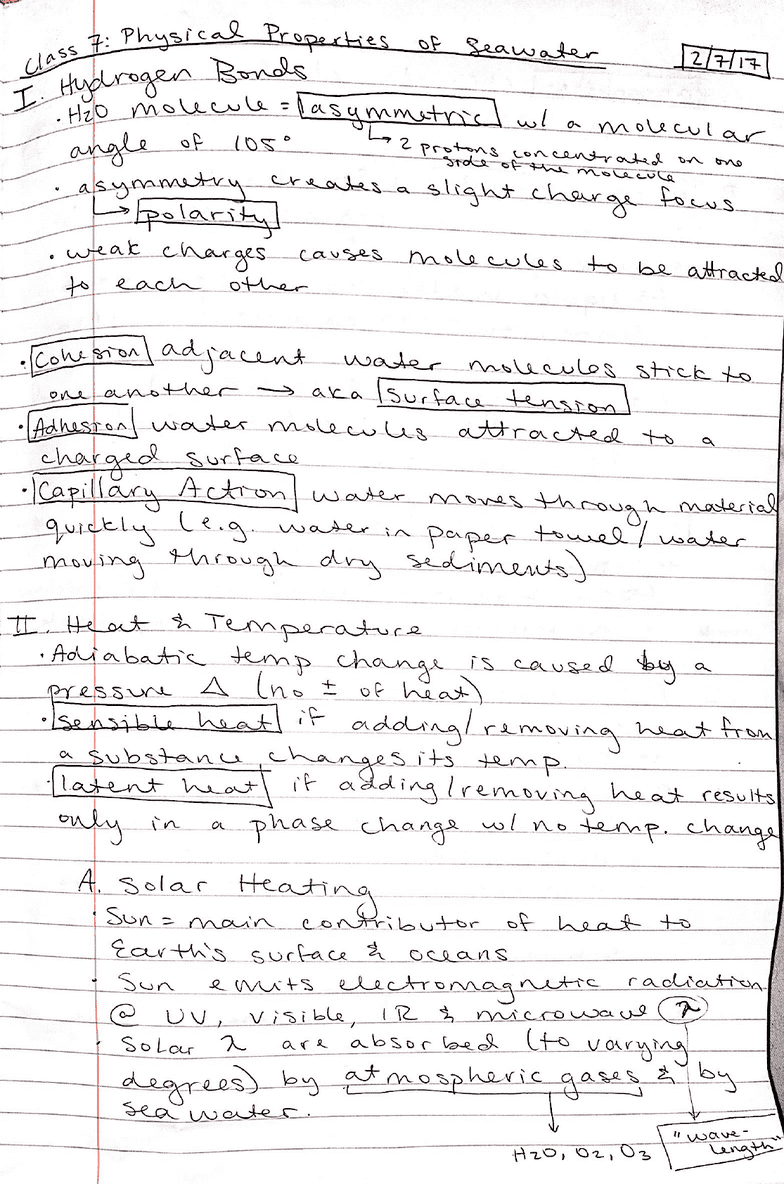 Class 7: Physical Properties of Seawater
2/7/17
I. Hydrogen Bonds
· H2O molecule = asymmetric w/ a molecular
angle of 105°
↳ 2 protons concentrated on one
side of the molecule
· asymmetry creates a slight charge focus
↳ polarity
· weak charges causes molecules to be attracted
to each other
· Cohesion adjacent water molecules stick to
one another → aka Surface tension
· Adhesion water molecules attracted to a
charged surface
· Capillary Action water moves through material
quickly (e.g. water in paper towel / water
moving through dry sediments)
II. Heat & Temperature
· Adiabatic temp change is caused by a
pressure Δ (no ± of heat)
· sensible heat if adding/removing heat from
a substance changes its temp.
· latent heat if adding/removing heat results
only in a phase change w/ no temp. change
A. Solar Heating
· Sun = main contributor of heat to
Earth's surface & oceans
· Sun emits electromagnetic radiation
@ UV, visible, IR & microwave λ
· Solar λ are absorbed (to varying
degrees) by atmospheric gases & by
sea water.
H2O, O2, O3
"wave-
length"